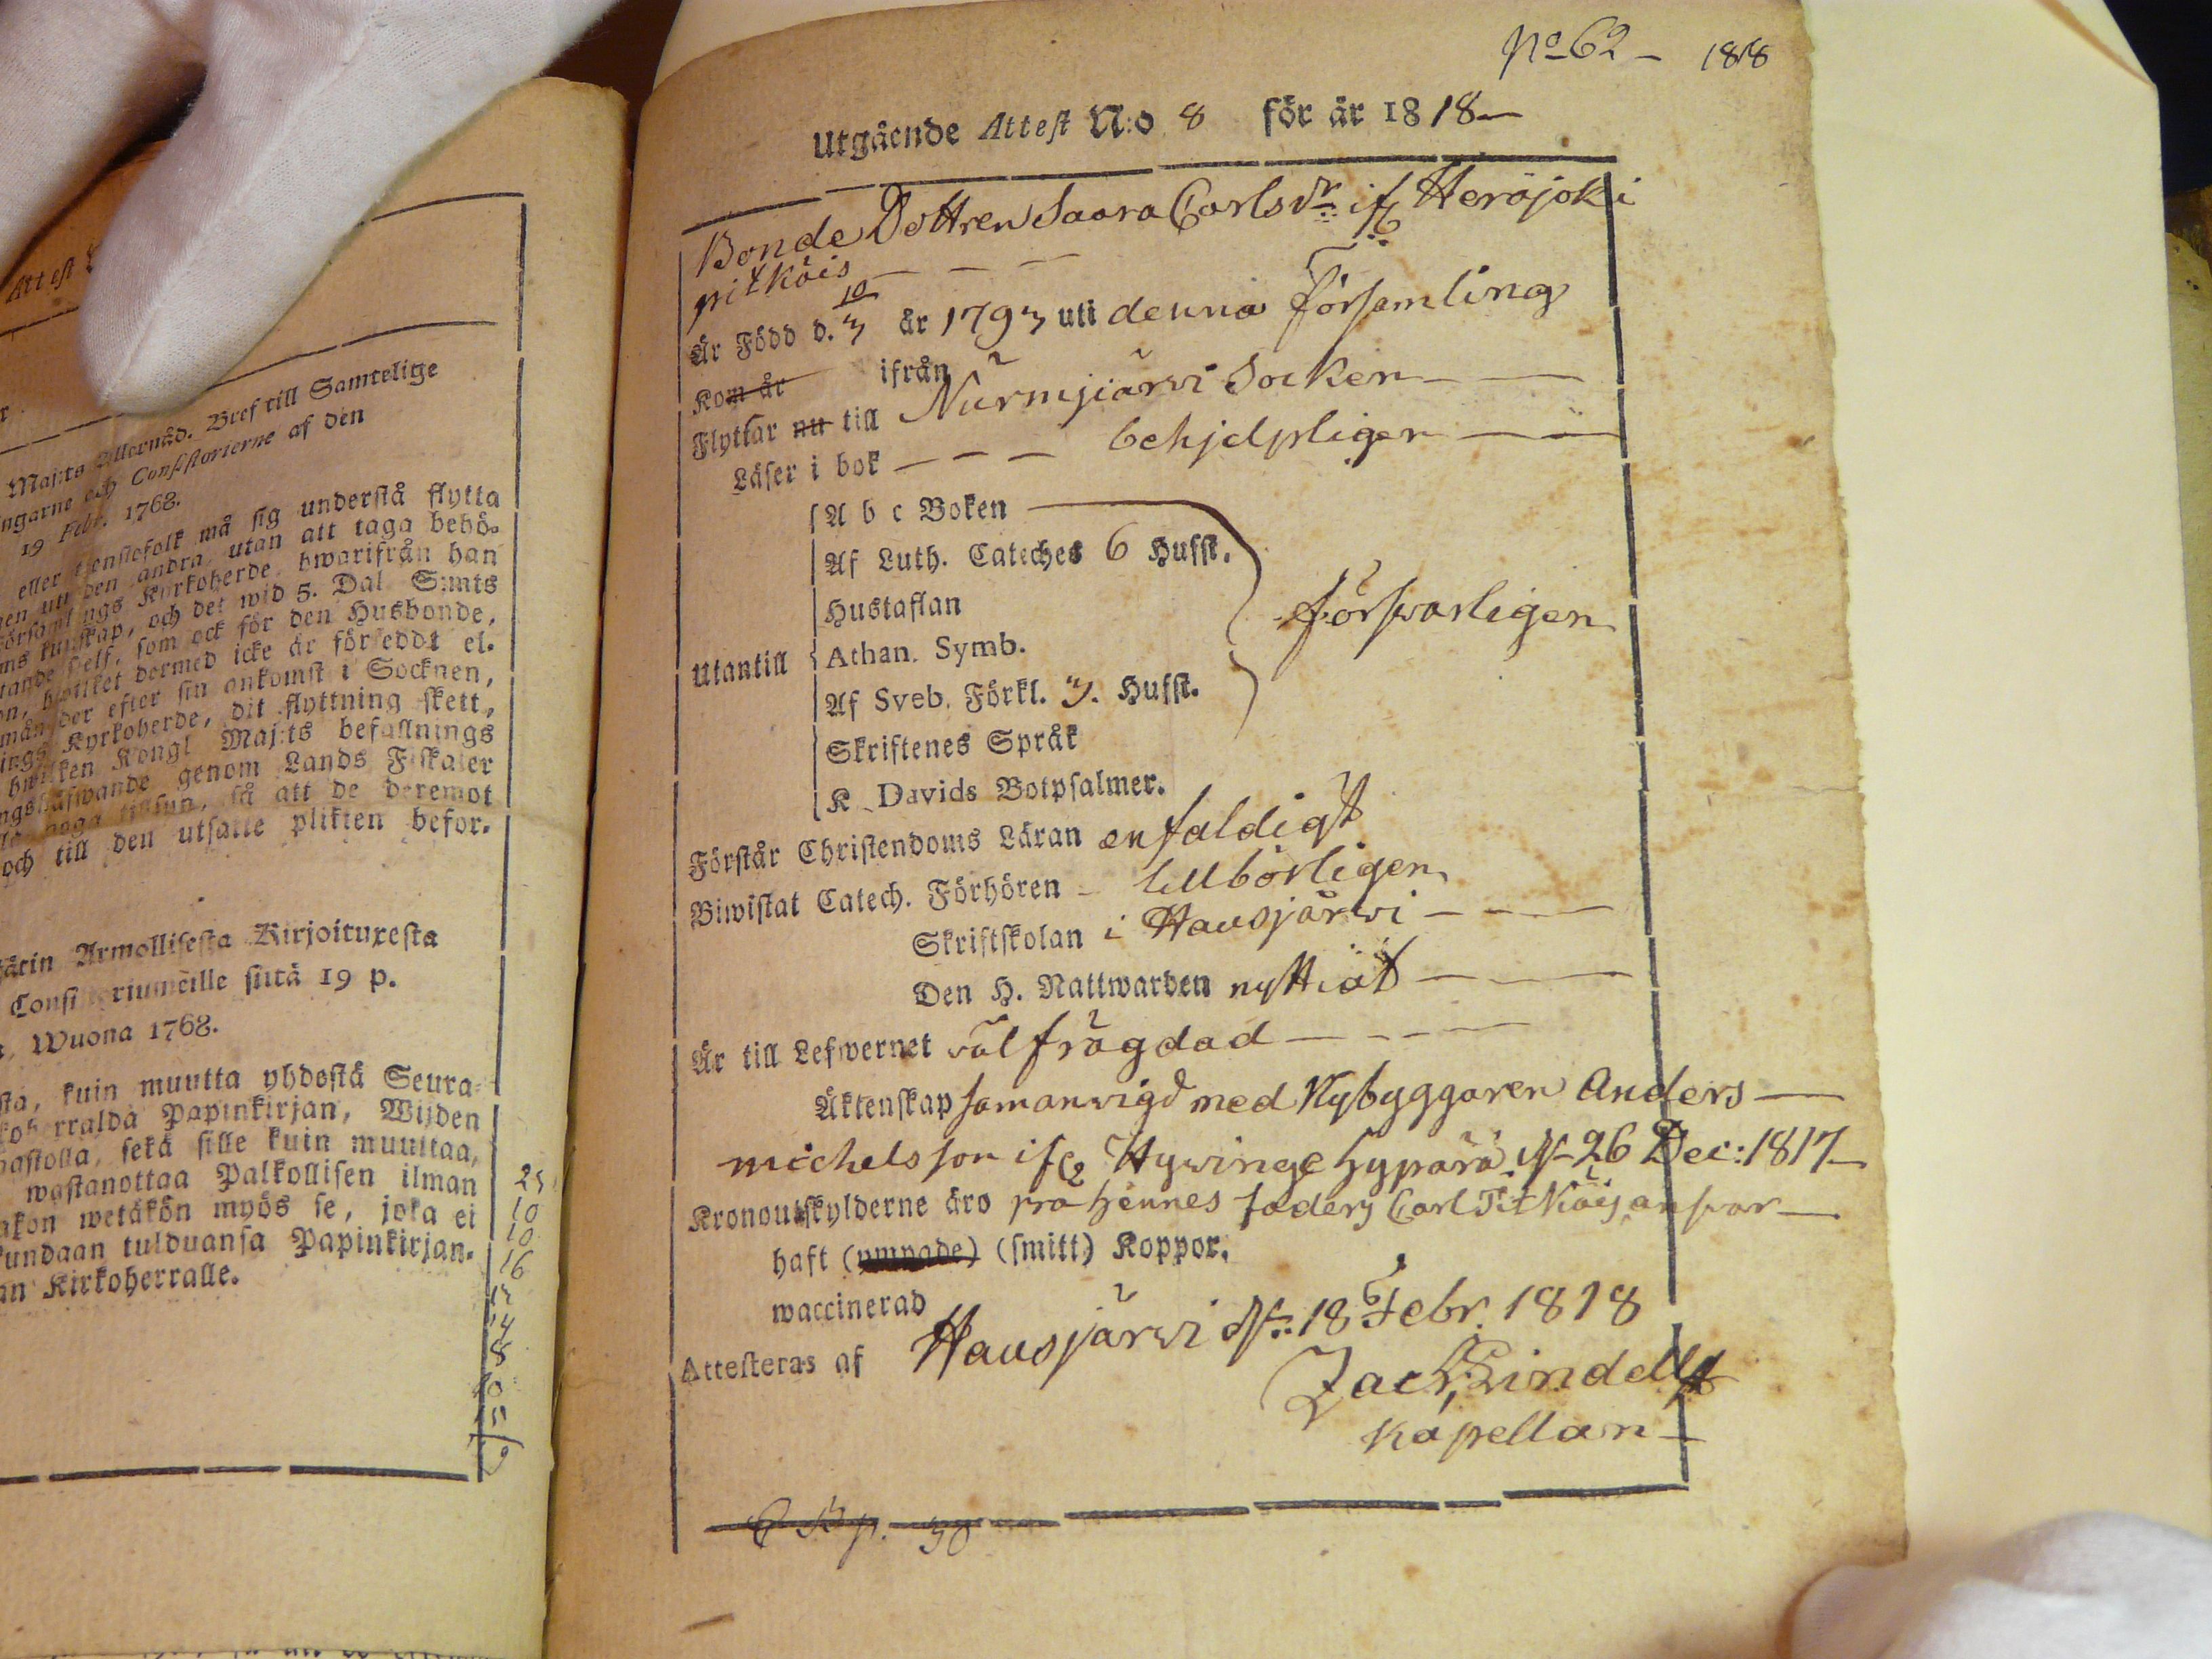 Att est
r
Maj:ts Allernåd. Bref till Samtelige
ngarne och Consistorierne af den
19 Febr. 1768.
eller tjenstefolk må sig understå flytta
en uti den andra, utan att taga behö-
örsamlings Kyrkoherde, hwarifrån han
ms kunskap, och det wid 5. Dal Smts
tande sjelf, som ock för den Husbonde,
on, hwilket dermed icke är förseddt el.
mån der efter sin ankomst i Socknen,
ings Kyrkoherde, dit flyttning skett,
hwilken Kongl Maj:ts befallnings
genom Lands Fiskaler
noga tillsyn, så att de deremot
och till den utsatte plikten befor.
Armollisesta Kirjoituxesta
Consistoriumeille siitä 19 p.
Wuona 1768.
sta, kuin muutta yhdestä Seura-
koherralda Papinkirjan, Wijden
pastolla, sekä sille kuin muuttaa,
wastanottaa Palkollisen ilman
akon wetäkön myös se, joka ei
kundaan tulduansa Papinkirjan-
an Kirkoherralle.
25
10
10
16
No 62 - 1818
Utgående Attest N:o 8 för år 1818
Bonde Dottren Saara Carlsdr: ifr: Heräjoki
pitkäis
Är Född d. 10/3 år 1793 uti denna Församling
Kom år ifrån
Flyttar nu till Nurmijärwi Socken
Läser i bok behjelpligen
Utantill
A b c Boken
Af Luth. Cateches 6 Hufst.
Hustaflan
Athan. Symb.
Af Sveb. Förkl. 3. Hufst.
Skriftenes Språk
K Davids Botpsalmer.
försvarligen
Förstår Christendoms Läran enfaldigt
Biwistat Catech. Förhören - tillbörligen
Skriftskolan i Hausjärwi
Den H. Nattwarden nyttjat
Är till Lefwernet väl frägdad
Äktenskap samanvigd med Nybyggaren Anders
Michelsson ifr: Hywinge Hyparä d. 26 Dec: 1817
Kronoutskylderne äro på hennes faders Carl Pitkäis answar
haft (ympade) (smitt) Koppor.
waccinerad
Attesteras af Hausjärwi d: 18 Febr. 1818
Zach: Lindell
Kapellan